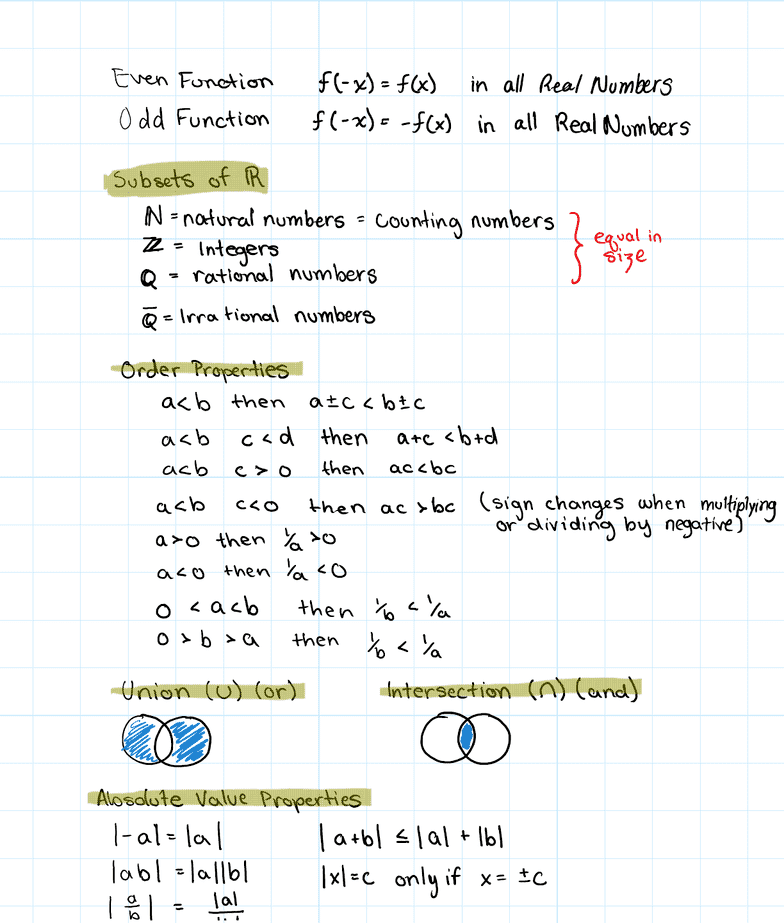 Even Function f(-x) = f(x) in all Real Numbers
Odd Function f(-x) = -f(x) in all Real Numbers
Subsets of ℝ
ℕ = natural numbers = counting numbers
ℤ = Integers
Q = rational numbers
equal in
size
Q̅ = Irrational numbers
Order Properties
a<b then a±c < b±c
a<b c<d then a+c <b+d
a<b c>0 then ac<bc
a<b c<0 then ac >bc (sign changes when multiplying
or dividing by negative)
a>0 then 1/a >0
a<0 then 1/a <0
0 < a<b then 1/b < 1/a
0 > b > a then 1/b < 1/a
Union (∪) (or) Intersection (∩) (and)
Absolute Value Properties
|-a| = |a| |a+b| ≤ |a| + |b|
|ab| = |a||b| |x|=c only if x = ±c
|a/b| = |a|